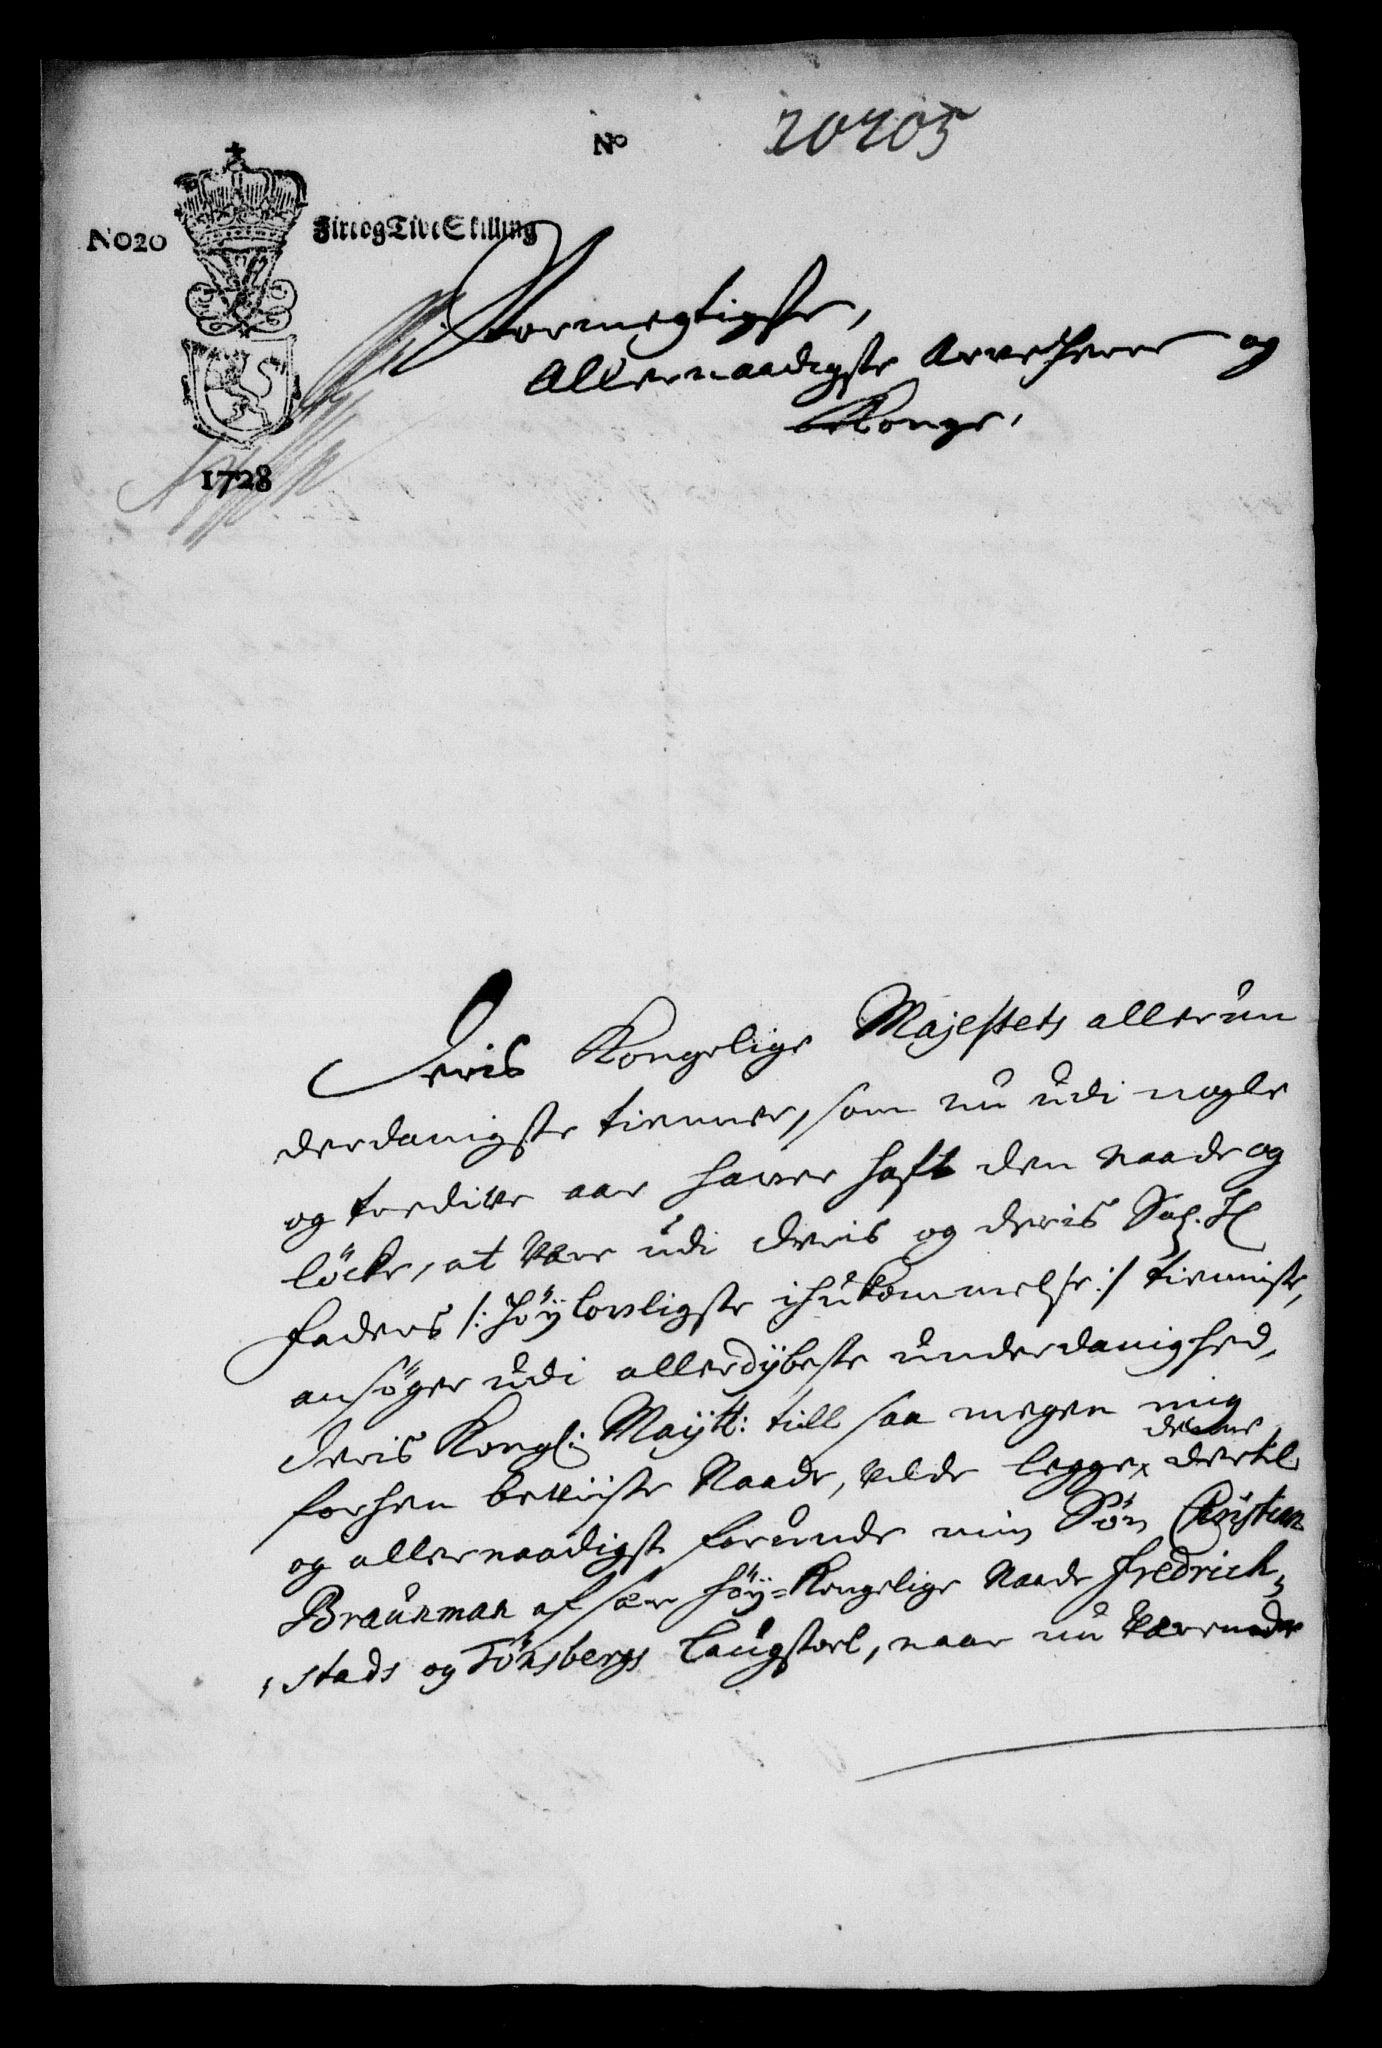 No 20205
No 20 Fire og Tive Skilling
1728
Stormegtigste,
Allernaadigste Arve Herre og
Konge,
Deris Kongelige Majestets allerun
derdanigste tienner, som nu udi nogle
og tredive aar haver haft den Naade og
löcke, at Være udi Deris og Deris Sal. H
Faders /: Höÿlovligste ihukommelse :/ tienniste,
ansöger udi allerdÿbeste underdanighed,
Deris Kongl: Maÿtt: till saa megen mig
forhen beviiste Naade, Vilde legge denne dertil
og allernaadigst forunde min Sön Christian
Braunman af sær höÿ-Kongelige Naade Fredrich-
stads og Tönsbergs Laugstoel, naar nu Værende